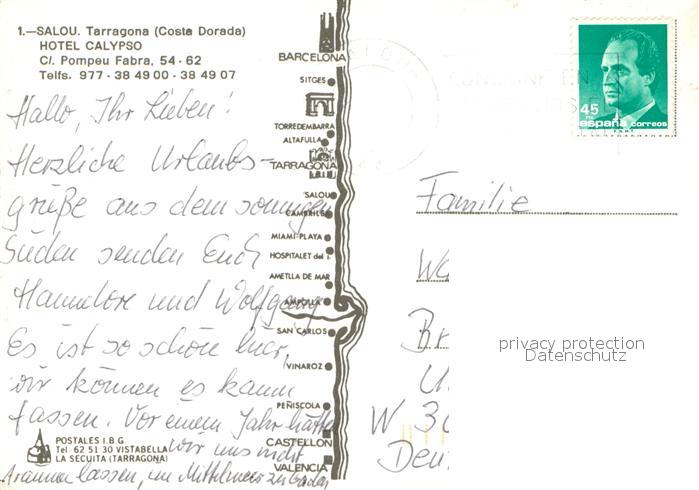 1.—SALOU. Tarragona (Costa Dorada)
HOTEL CALYPSO
C/. Pompeu Fabra, 54 - 62
Telfs. 977 - 38 49 00 - 38 49 07
Hallo, Ihr Lieben!
Herzliche Urlaubs-
grüße aus dem sonnigen
Süden senden Euch
Hannelore und Wolfgang
Es ist so schön hier,
wir können es kaum
fassen. Vor einem Jahr hätte
wir uns nicht
träumen lassen, im Mittelmeer zu baden
POSTALES I.B.G.
Tel. 62 51 30 VISTABELLA
LA SECUITA (TARRAGONA)
BARCELONA
SITGES
TORREDEMBARRA
ALTAFULLA
TARRAGONA
SALOU
CAMBRILS
MIAMI-PLAYA
HOSPITALET del I.
AMETLLA DE MAR
AMPOLLA
SAN CARLOS
VINAROZ
PEÑISCOLA
CASTELLON
VALENCIA
45
PTA
españa correos
F.N.M.T.
Familie
We
Br
W 30
Deu
privacy protection
Datenschutz